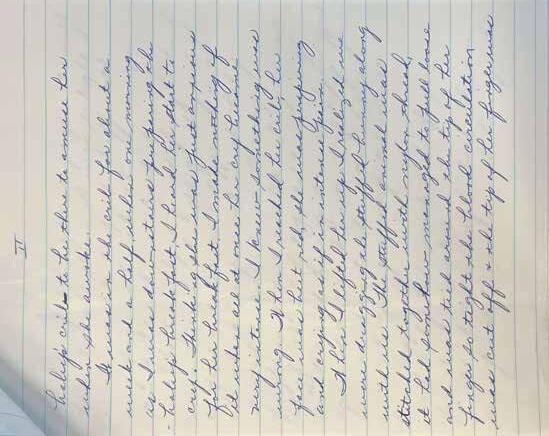 II
baby's crib to be there to amuse her
when she awoke.
It was in the crib for about a
week and a half when one morning
as I was down stairs preparing the
baby's breakfast I heard her start to
cry. Thinking she was just anxious
for her breakfast I made nothing of
it when all at once her cry became
very intense. I knew something was
wrong. When I reached her crib, her
face was beet red, she was jumping
and crying as if in intense pain.
When I lifted her up I realized we
were dragging the stuffed animal along
with us. The stuffed animal was
stitched together with nylon thread,
it had somehow managed to pull loose
and wrapped around the tip of her
finger so tight the blood circulation
was cut off & the tip of her finger was